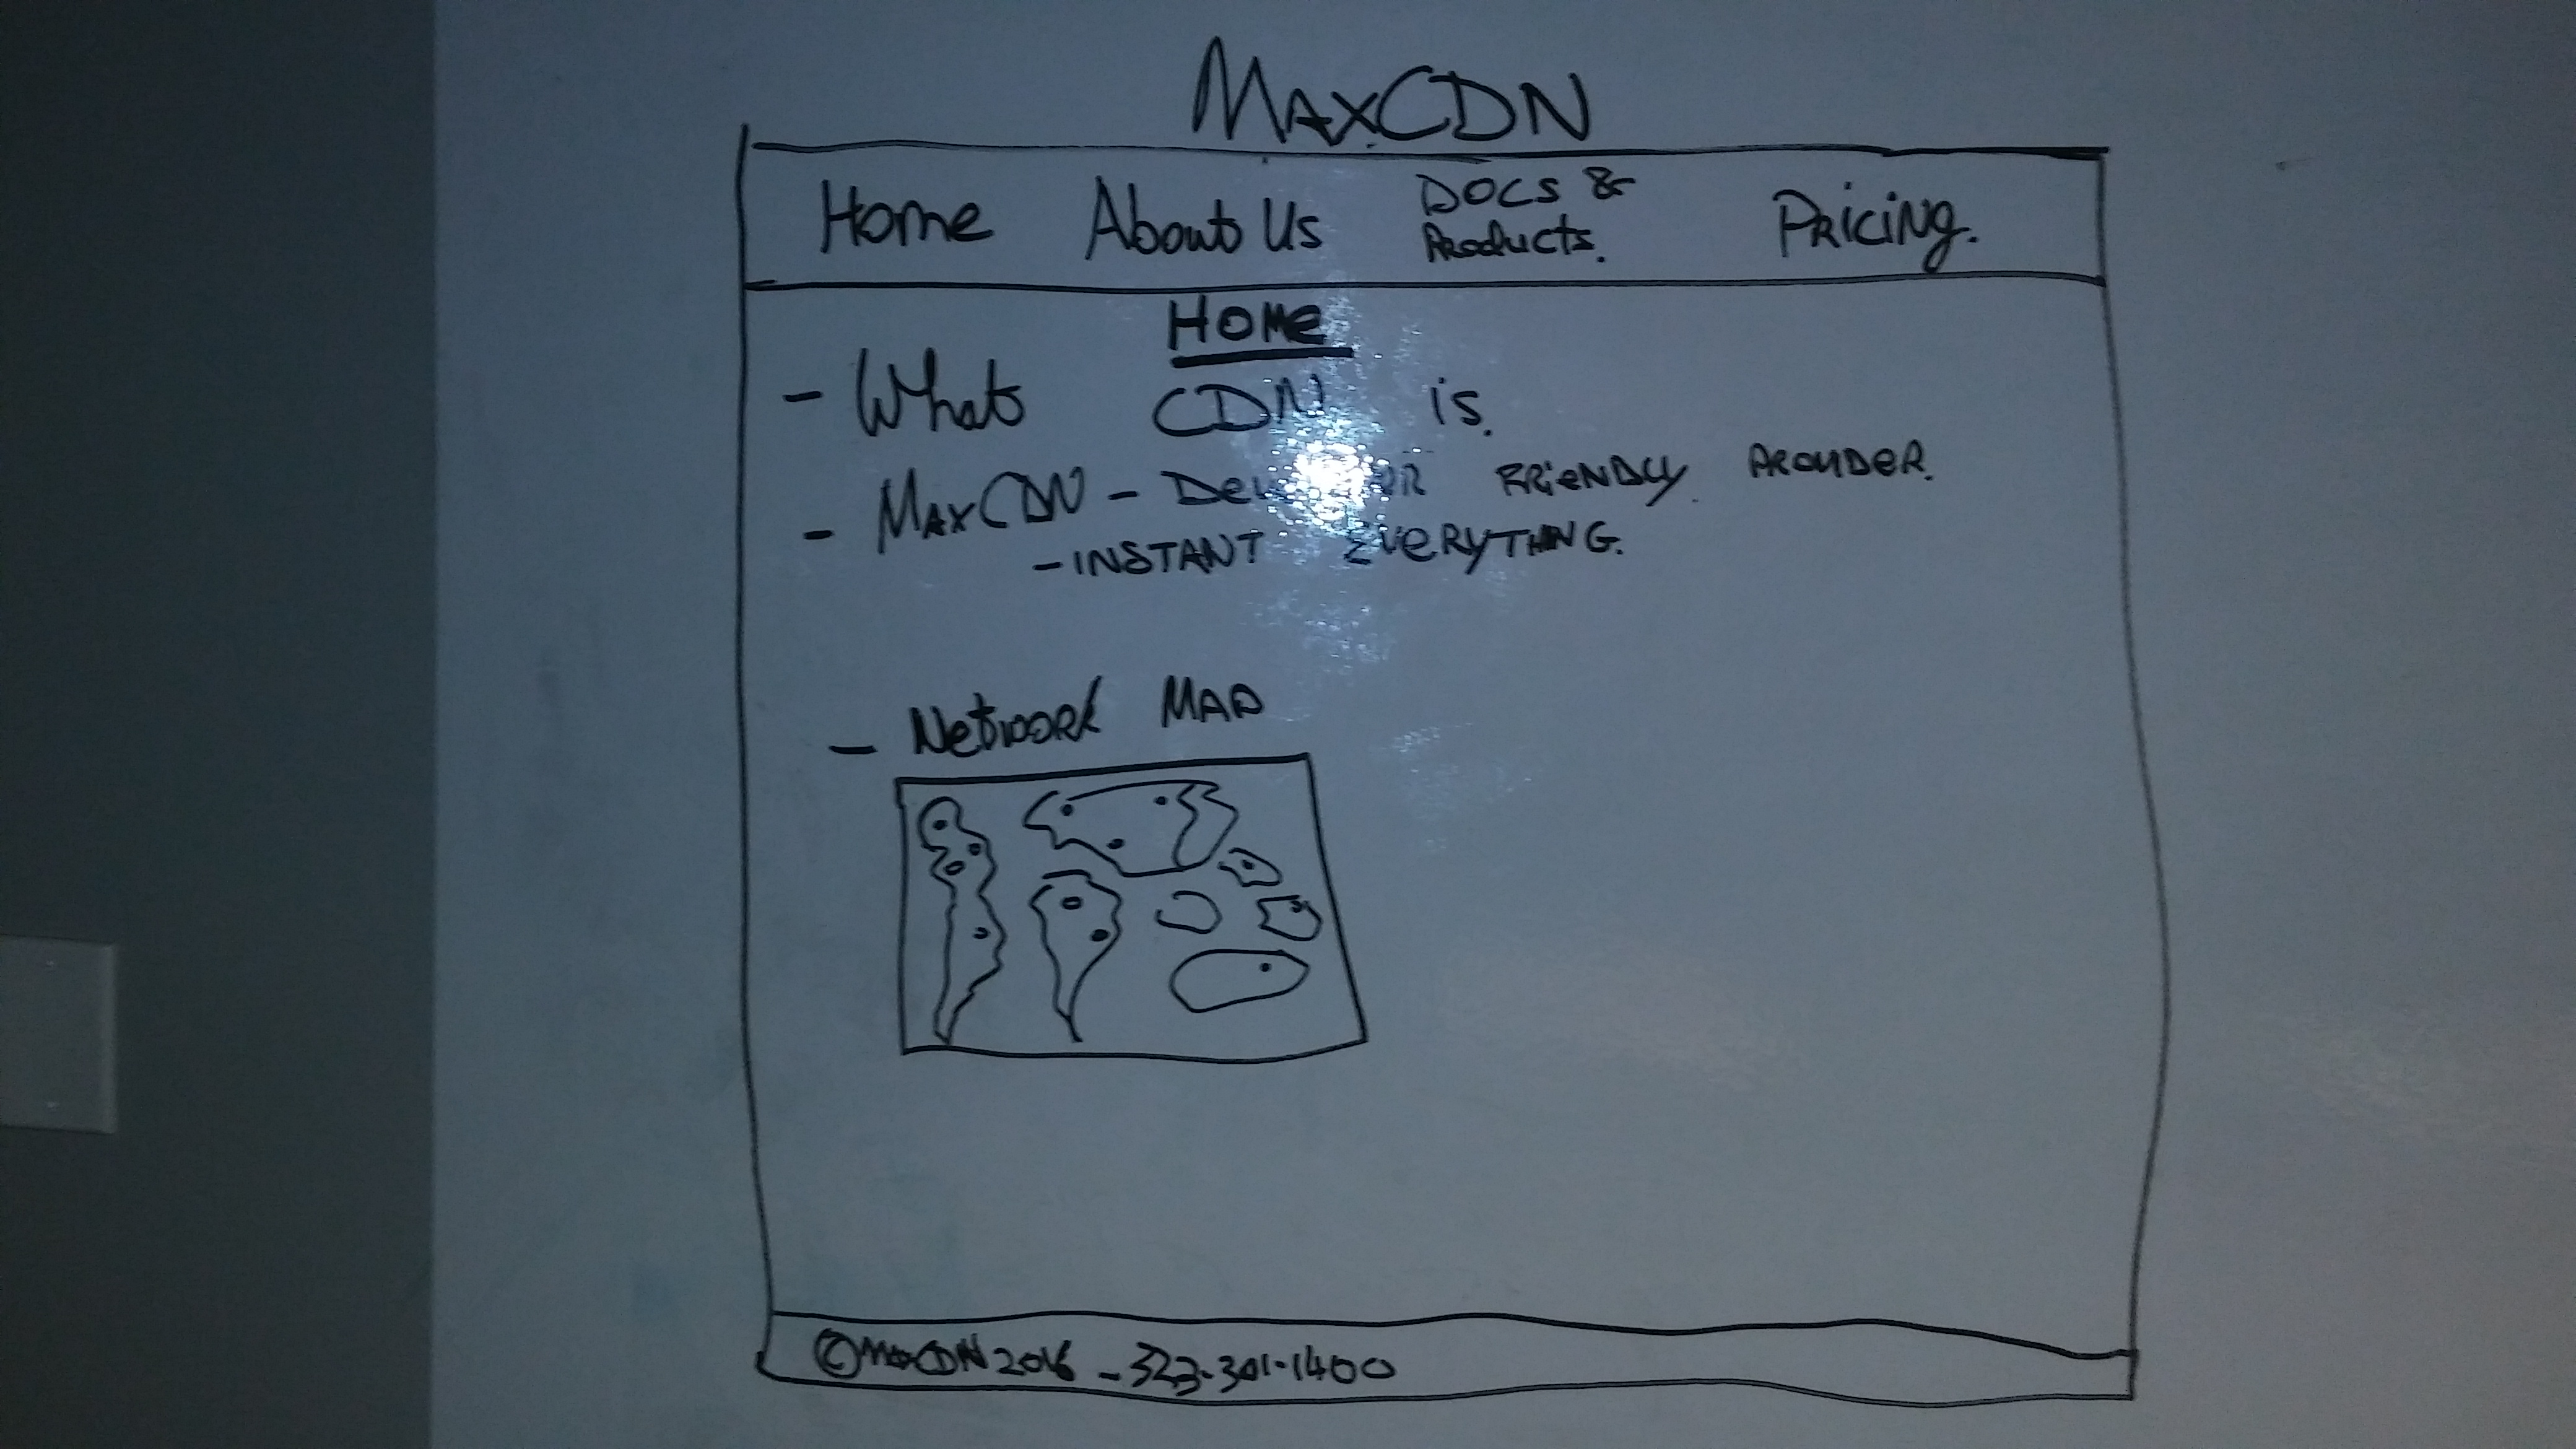 MAXCDN
Home About Us DOCS & Products. Pricing.
HOMe
- Whats CDN is.
- MAXCDN - FRieNDLY PROVIDeR.
- INSTANT EVeRYTHING.
- NetWORK MAP
© MAXCDN 2016 - 323-301-1400